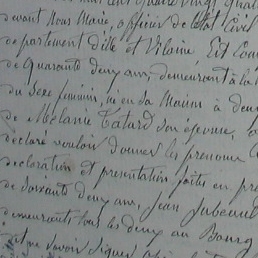 mil huit cent quatre vingt quatre
devant Nous Maire, officier de l'État Civil
département d'Ille et Vilaine, Est Com
de quarante deux ans, demeurant à la
du Sexe féminin, né en sa Maison à deux
de Mélanie Tatard son épouse, a
déclaré vouloir donner les prénoms
déclaration et présentation faites en pré
de soixante deux ans, Jean
demeurants tous les deux au Bourg
savoir signer